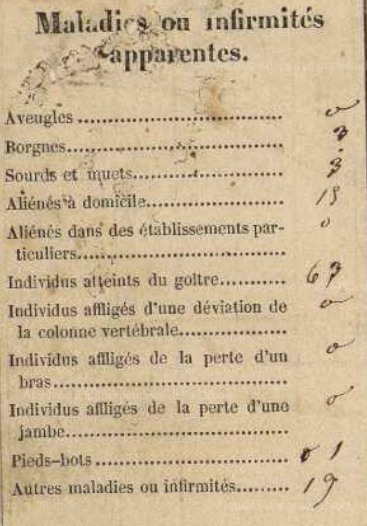 Maladies ou infirmités
apparentes.
Aveugles .................................. 0
Borgnes.................................... 3
Sourds et muets........................ 3
Aliénés à domicile..................... 15
Aliénés dans des établissements par-
ticuliers................................... 0
Individus atteints du goître........... 67
Individus affligés d'une déviation de
la colonne vertébrale................ 0
Individus affligés de la perte d'un
bras....................................... 0
Individus affligés de la perte d'une
jambe..................................... 0
Pieds-bots ............................... 1
Autres maladies ou infirmités......... 19